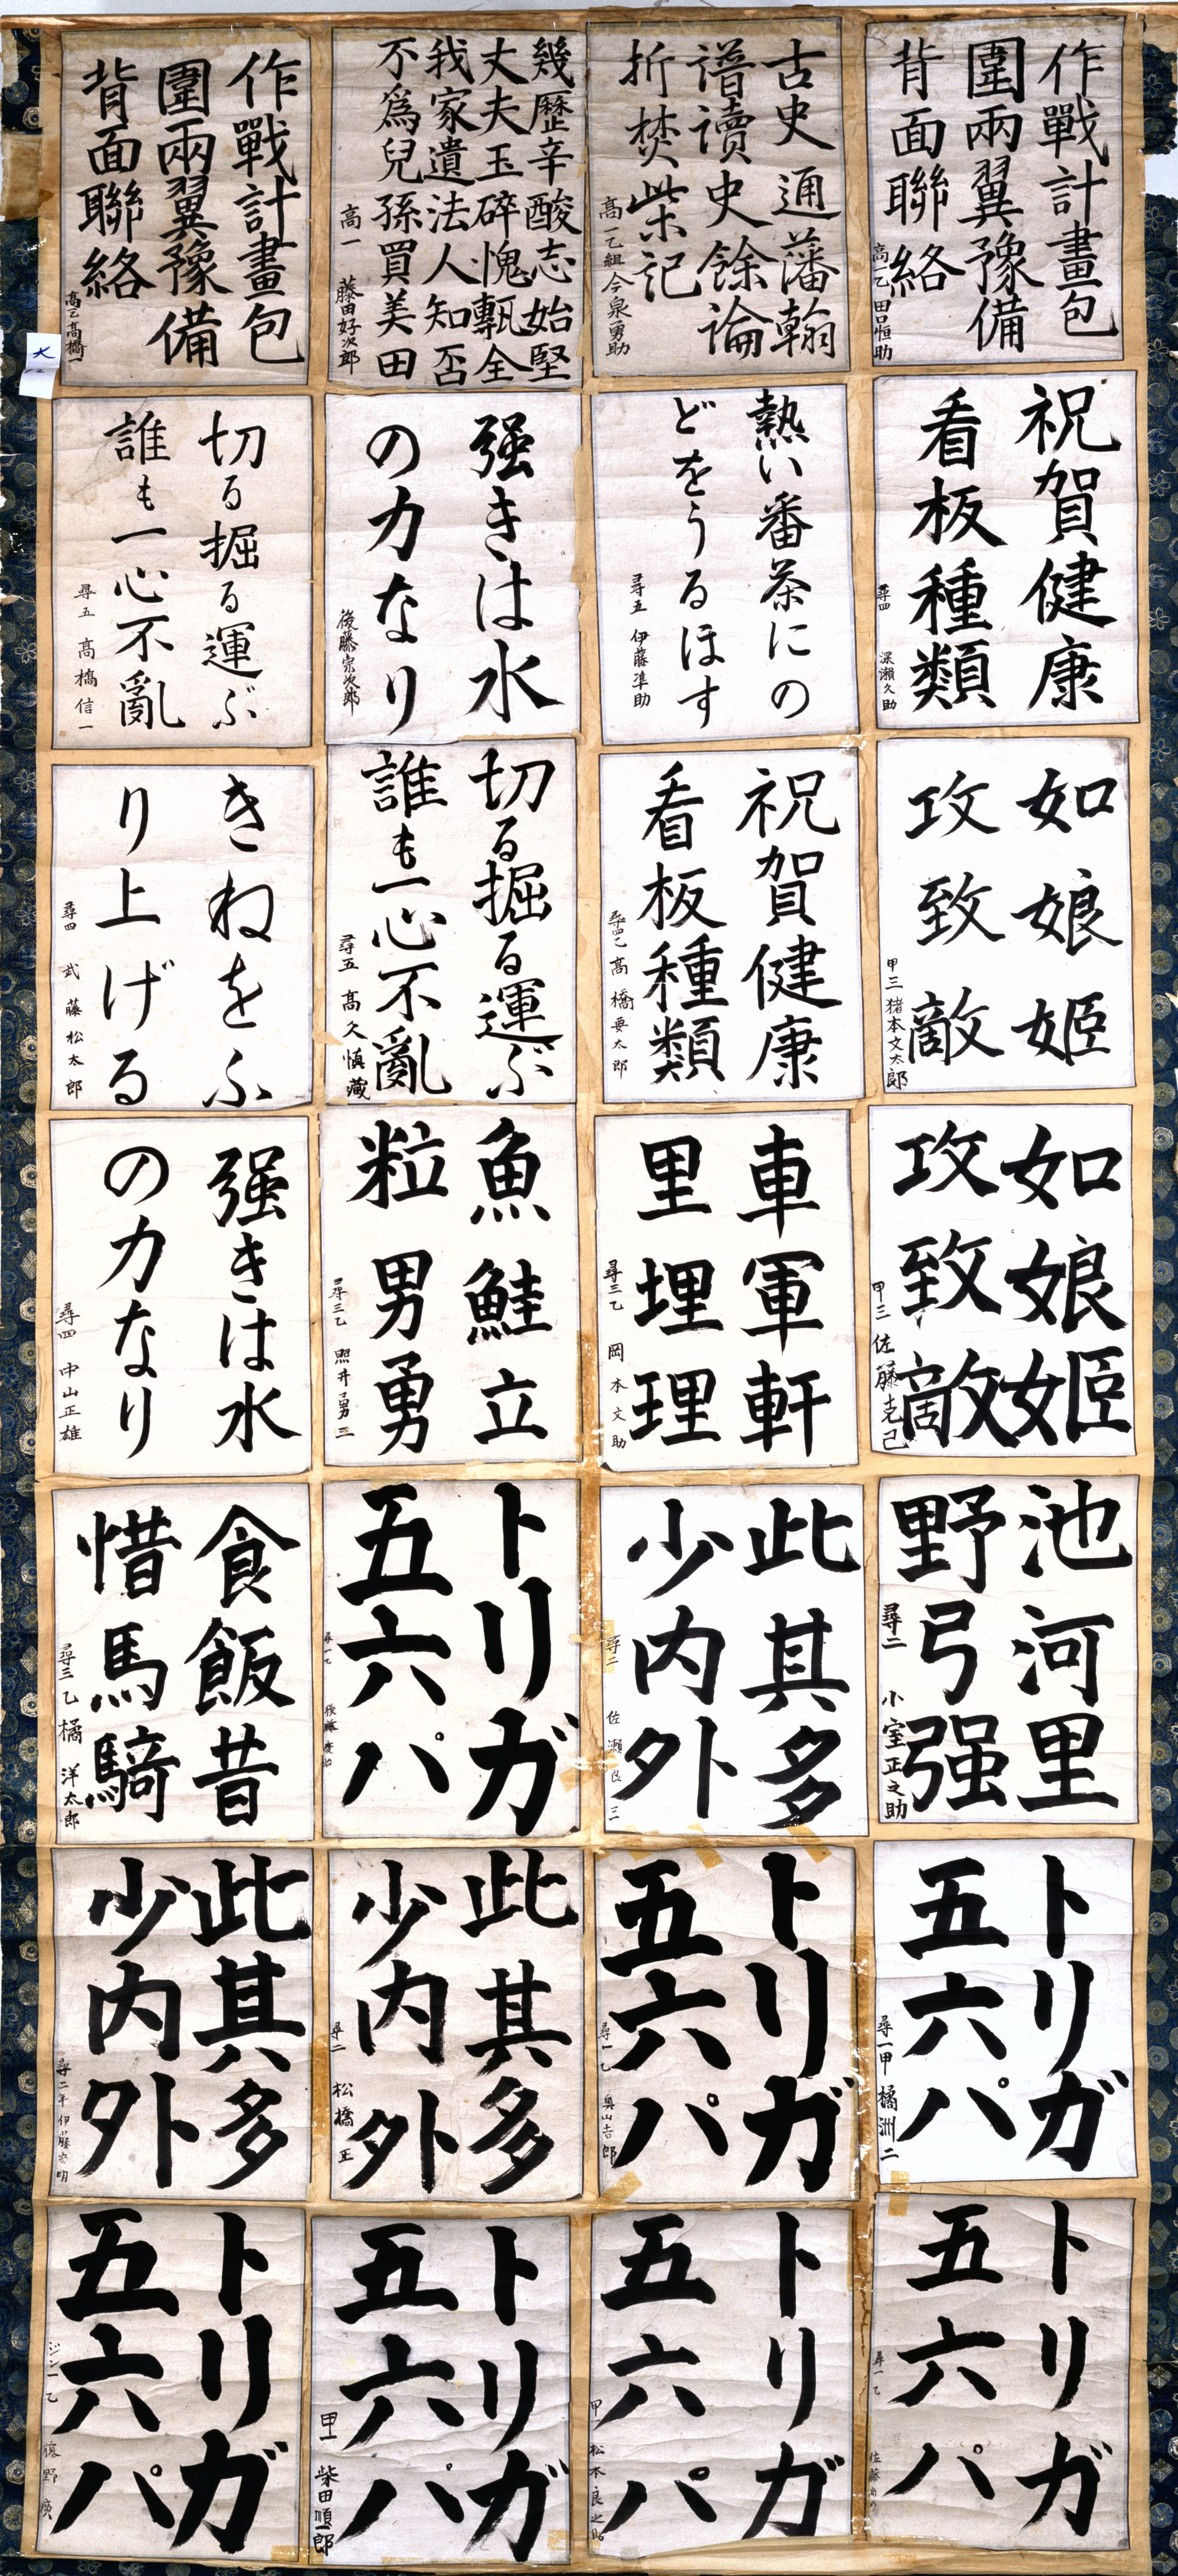 作戰計畫包
圍兩翼豫備
背面聯絡
高一乙 田口恒助
古史通藩翰
譜讀史餘論
折焚柴記
高一乙組 今泉勇助
幾歷辛酸志始堅
丈夫玉碎愧甎全
我家遺法人知否
不爲兒孫買美田
高一 藤田好次郎
作戰計畫包
圍兩翼豫備
背面聯絡
高一乙 高橋一
祝賀健康
看板種類
尋四 深瀨久助
熱い番茶にの
どをうるほす
尋五 伊藤準助
强きは水
の力なり
後藤宗次郎
切る掘る運ぶ
誰も一心不亂
尋五 高橋信一
如娘姬
攻致敵
甲三 猪本文太郎
祝賀健康
看板種類
尋四乙 高橋要太郎
切る掘る運ぶ
誰も一心不亂
尋五 高久愼藏
きねをふ
り上げる
尋四 武藤松太郎
如娘姬
攻致敵
甲三 佐藤克己
車軍軒
里埋理
尋三乙 岡本文助
魚鮭立
粒男勇
尋三乙 照井勇三
强きは水
の力なり
尋四 中山正雄
池河里
野弓强
尋二 小室正之助
此其多
少内外
尋二 佐瀨良三
トリガ
五六パ
尋一乙 後藤
食飯昔
惜馬騎
尋三乙 橘洋太郎
トリガ
五六パ
尋一甲 橘洲二
トリガ
五六パ
尋一乙 奥山吉郎
此其多
少内外
尋二 松橋正
此其多
少内外
尋二年 伊藤忠明
トリガ
五六パ
尋一乙 佐藤
トリガ
五六パ
甲一 松本良之助
トリガ
五六パ
甲一 柴田順一郎
トリガ
五六パ
ジン一乙 藤野廣